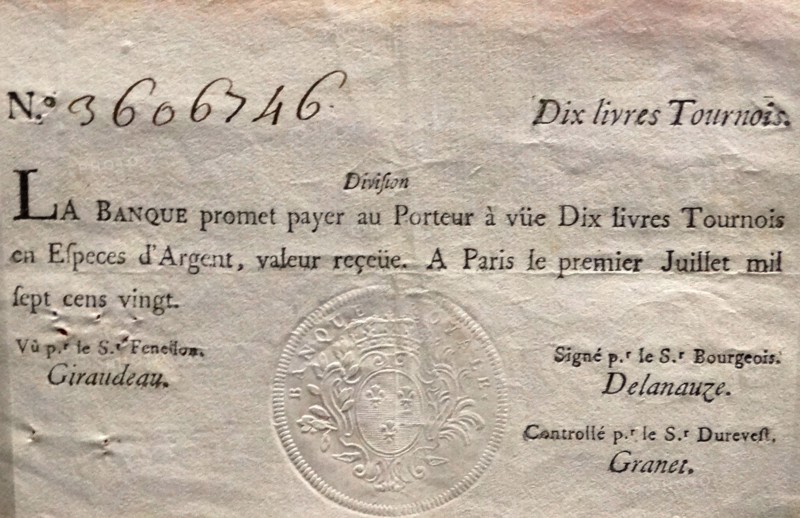 N.º 3606746. Dix livres Tournois.
Diviſion
LA BANQUE promet payer au Porteur à vûe Dix livres Tournois
en Eſpeces d'Argent, valeur reçeüe. A Paris le premier Juillet mil
ſept cens vingt.
Vû p.r le S.r Feneſſon.
Giraudeau.
Signé p.r le S.r Bourgeois.
Delanauze.
Controllé p.r le S.r Dureveſt.
Granet.
BANQUE ROYALE